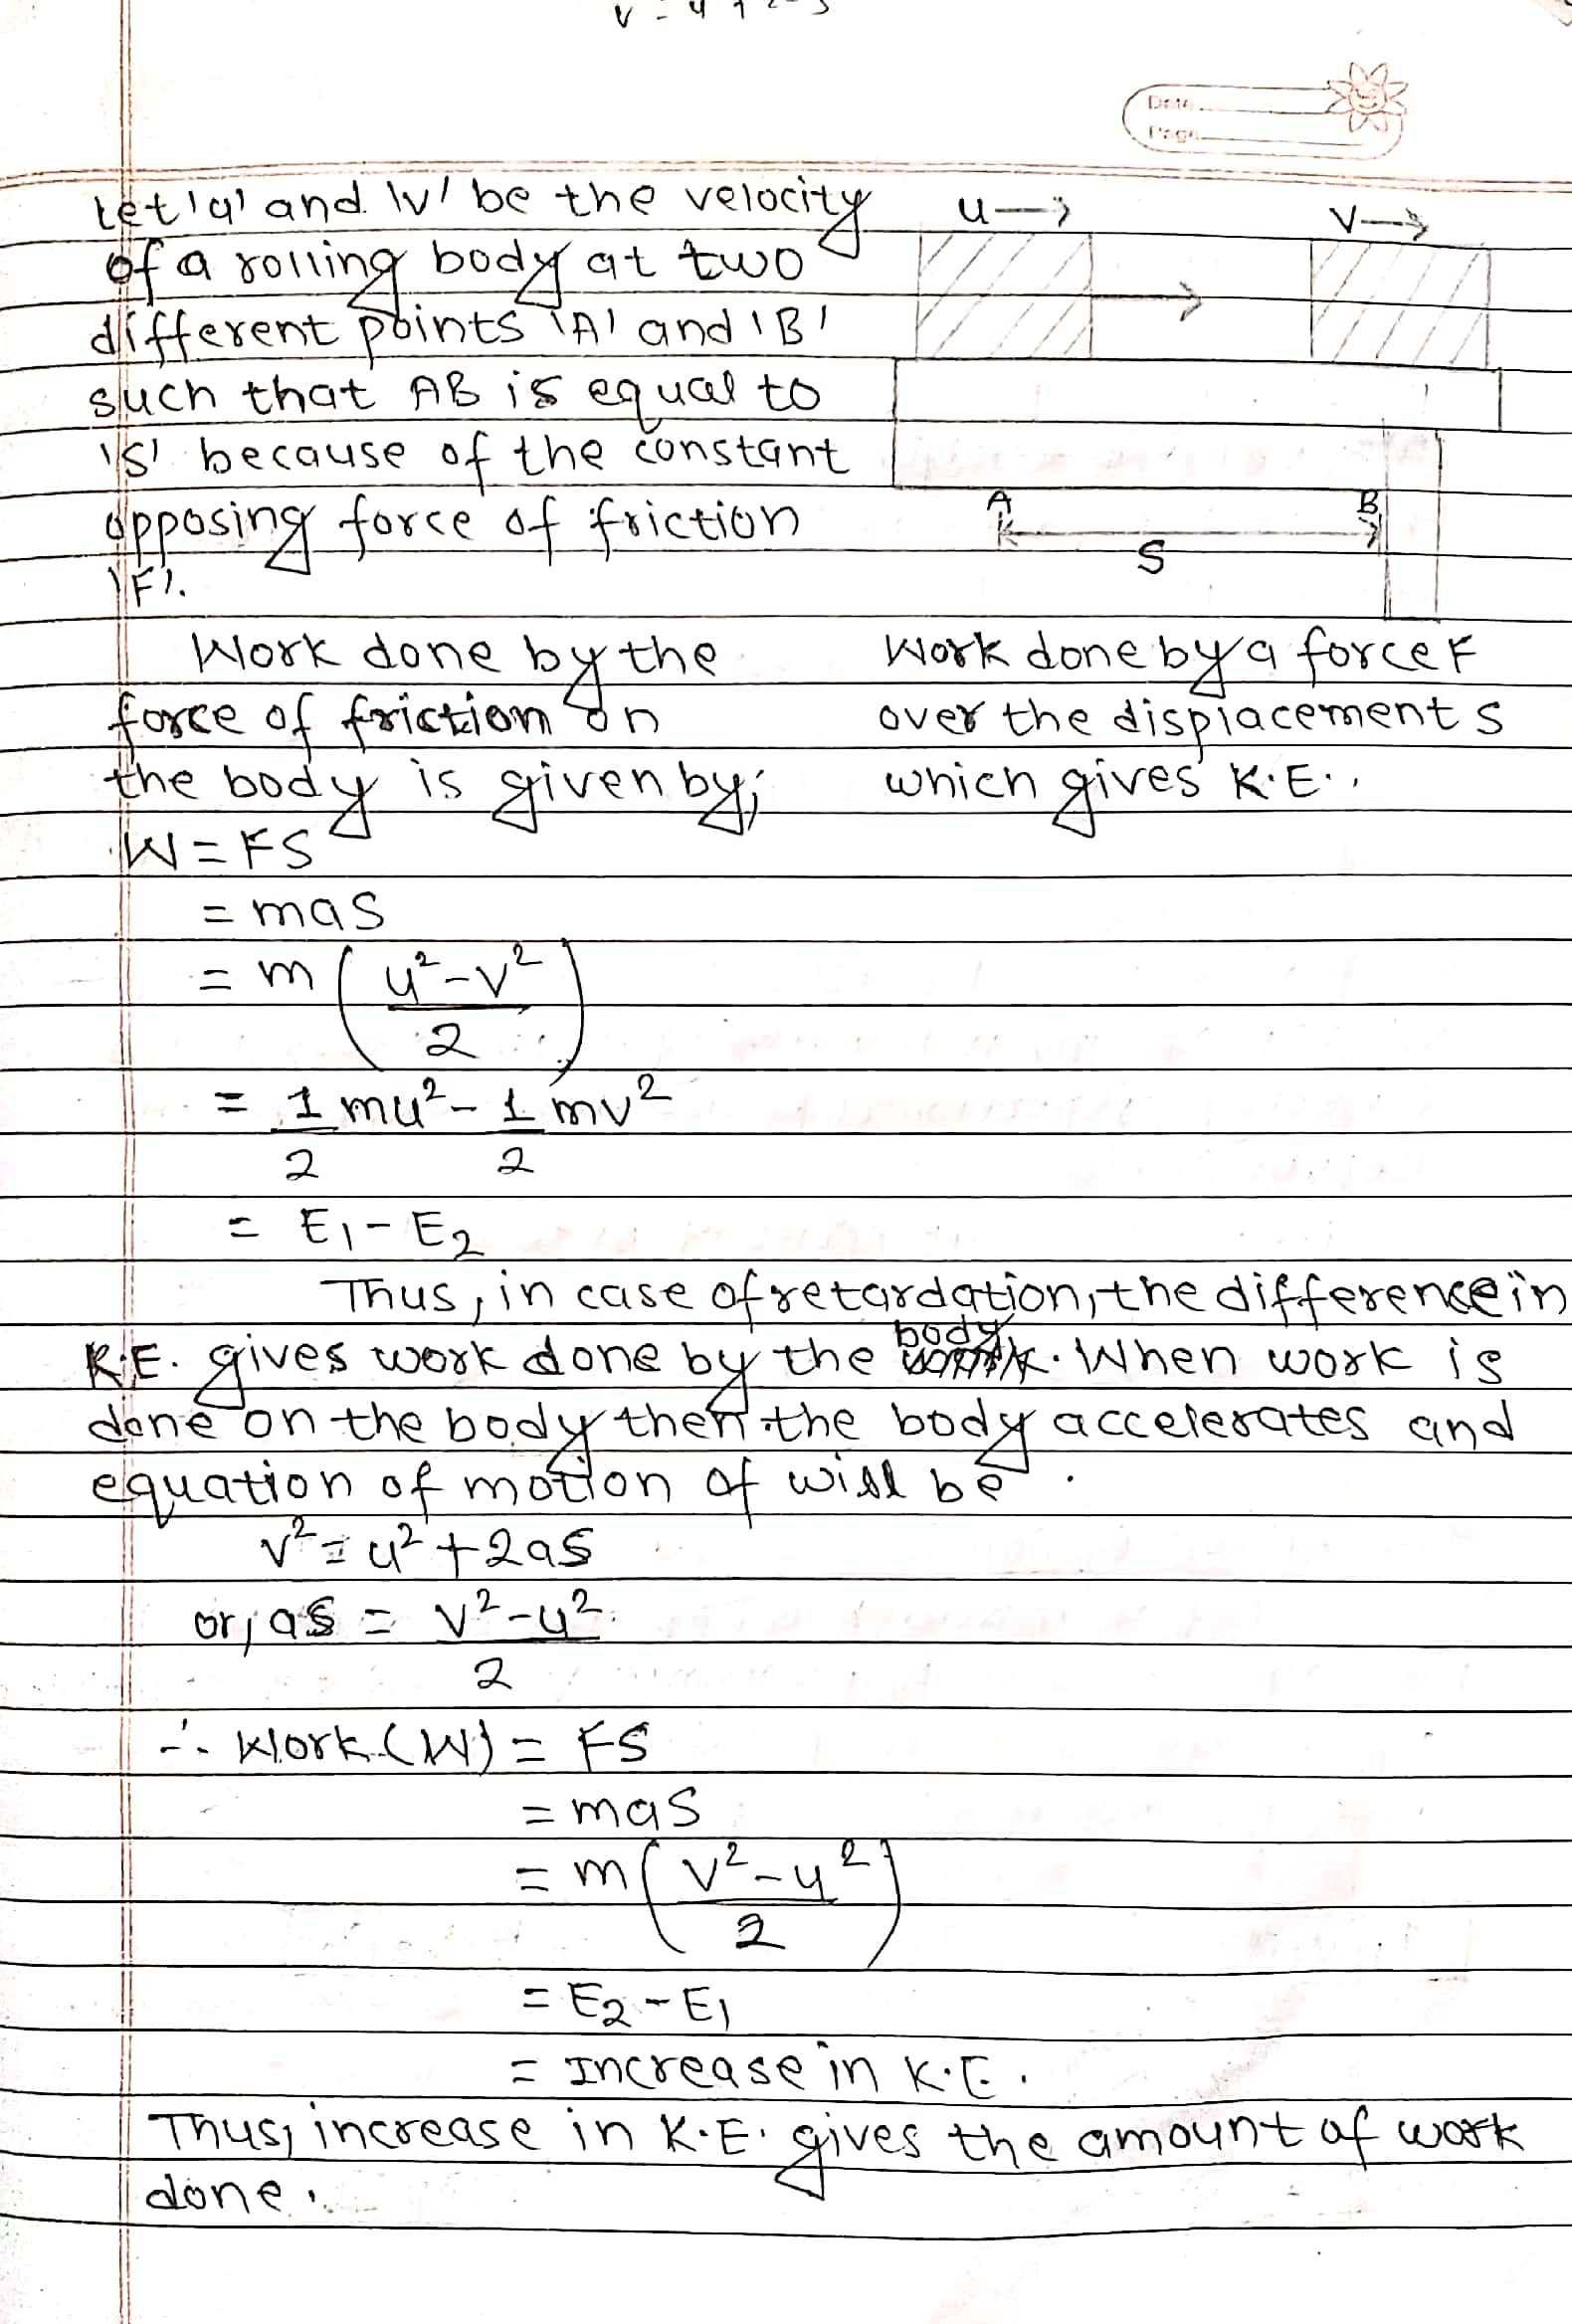 Date
Page
let 'u' and 'v' be the velocity
of a rolling body at two
different points 'A' and 'B'
such that AB is equal to
'S' because of the constant
opposing force of friction
'F'.
u→
v→
A
B
S
Work done by the
force of friction on
the body is given by;
Work done by a force F
over the displacement s
which gives K.E.
W = FS
= mas
= m ( u² - v² / 2 )
= 1/2 mu² - 1/2 mv²
= E₁ - E₂
Thus, in case of retardation, the difference in
K.E. gives work done by the body. When work is
done on the body then the body accelerates and
equation of motion of will be
v² = u² + 2as
or, as = v² - u² / 2
∴ Work (W) = FS
= mas
= m ( v² - u² / 2 )
= E₂ - E₁
= Increase in K.E.
Thus, increase in K.E. gives the amount of work
done.